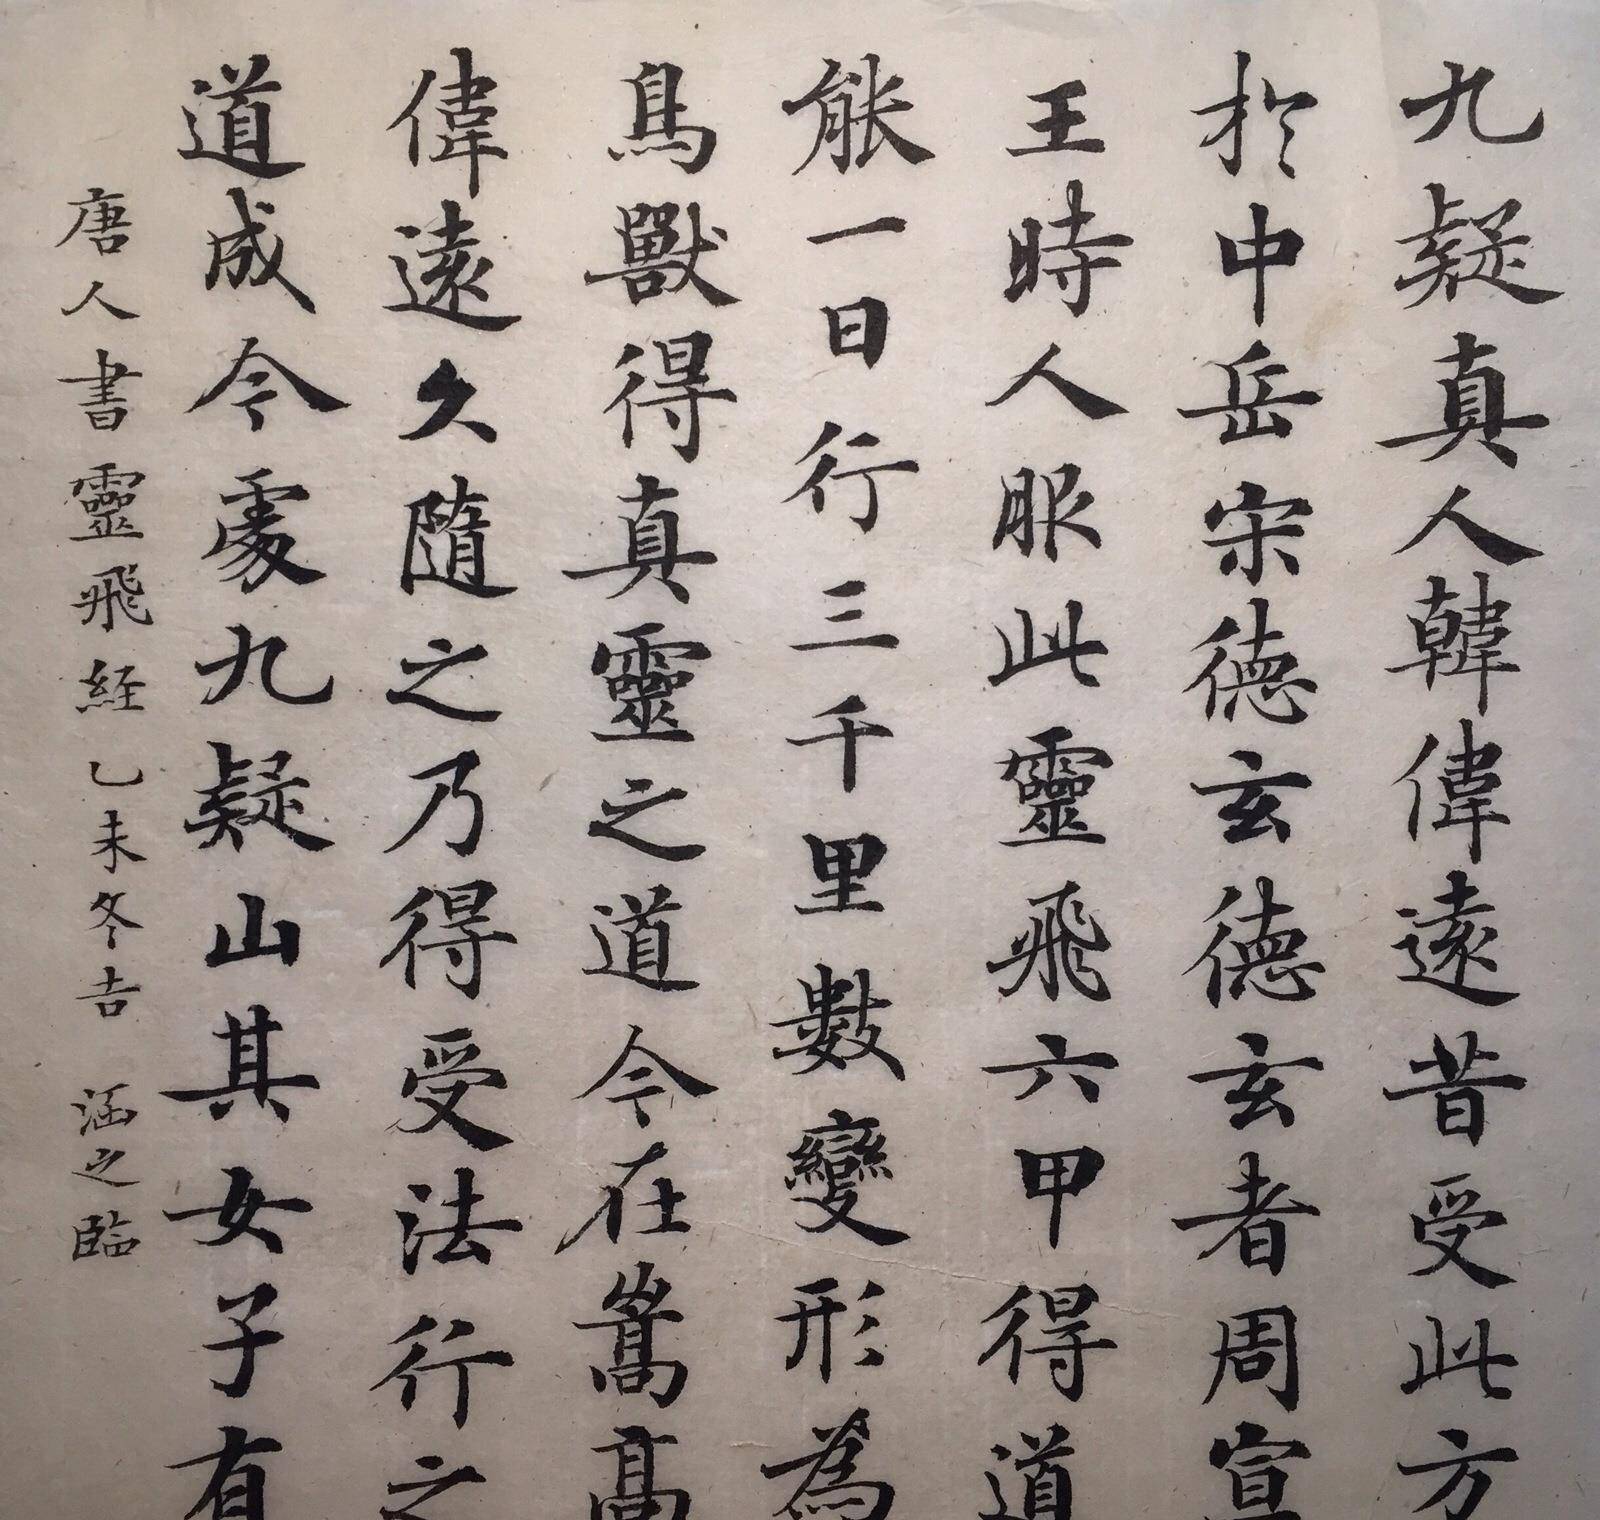 九疑真人韓偉遠昔受此方
於中岳宋德玄德玄者周宣
王時人服此靈飛六甲得道
能一日行三千里數變形為
鳥獸得真靈之道今在嵩高
偉遠久隨之乃得受法行之
道成今處九疑山其女子有
唐人書靈飛經 乙未冬吉 涵之臨